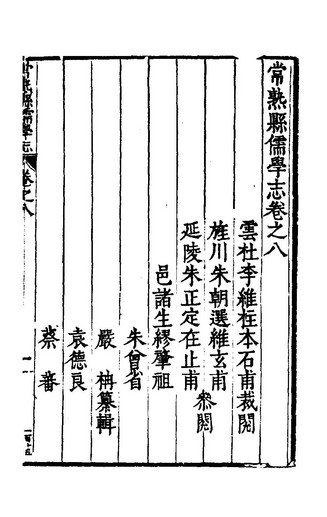 常熟縣儒學志卷之八
雲杜李維柱本石甫裁閱
旌川朱朝選維玄甫
延陵朱正定在止甫
叅閱
邑諸生繆肇祖
朱曾省
嚴栴纂輯
袁德良
蔡審
常熟縣儒學志
卷之八
一